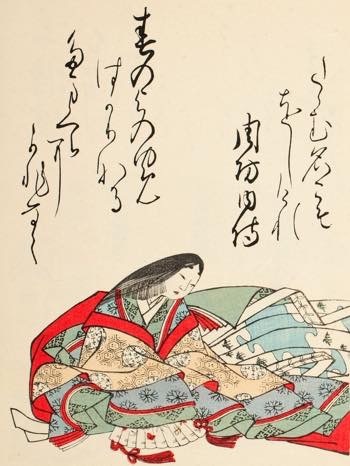 たゝむ名こそ
をしけれ
周防内侍
春のよのゆめ
はかりなる
たまくらに
かひなく